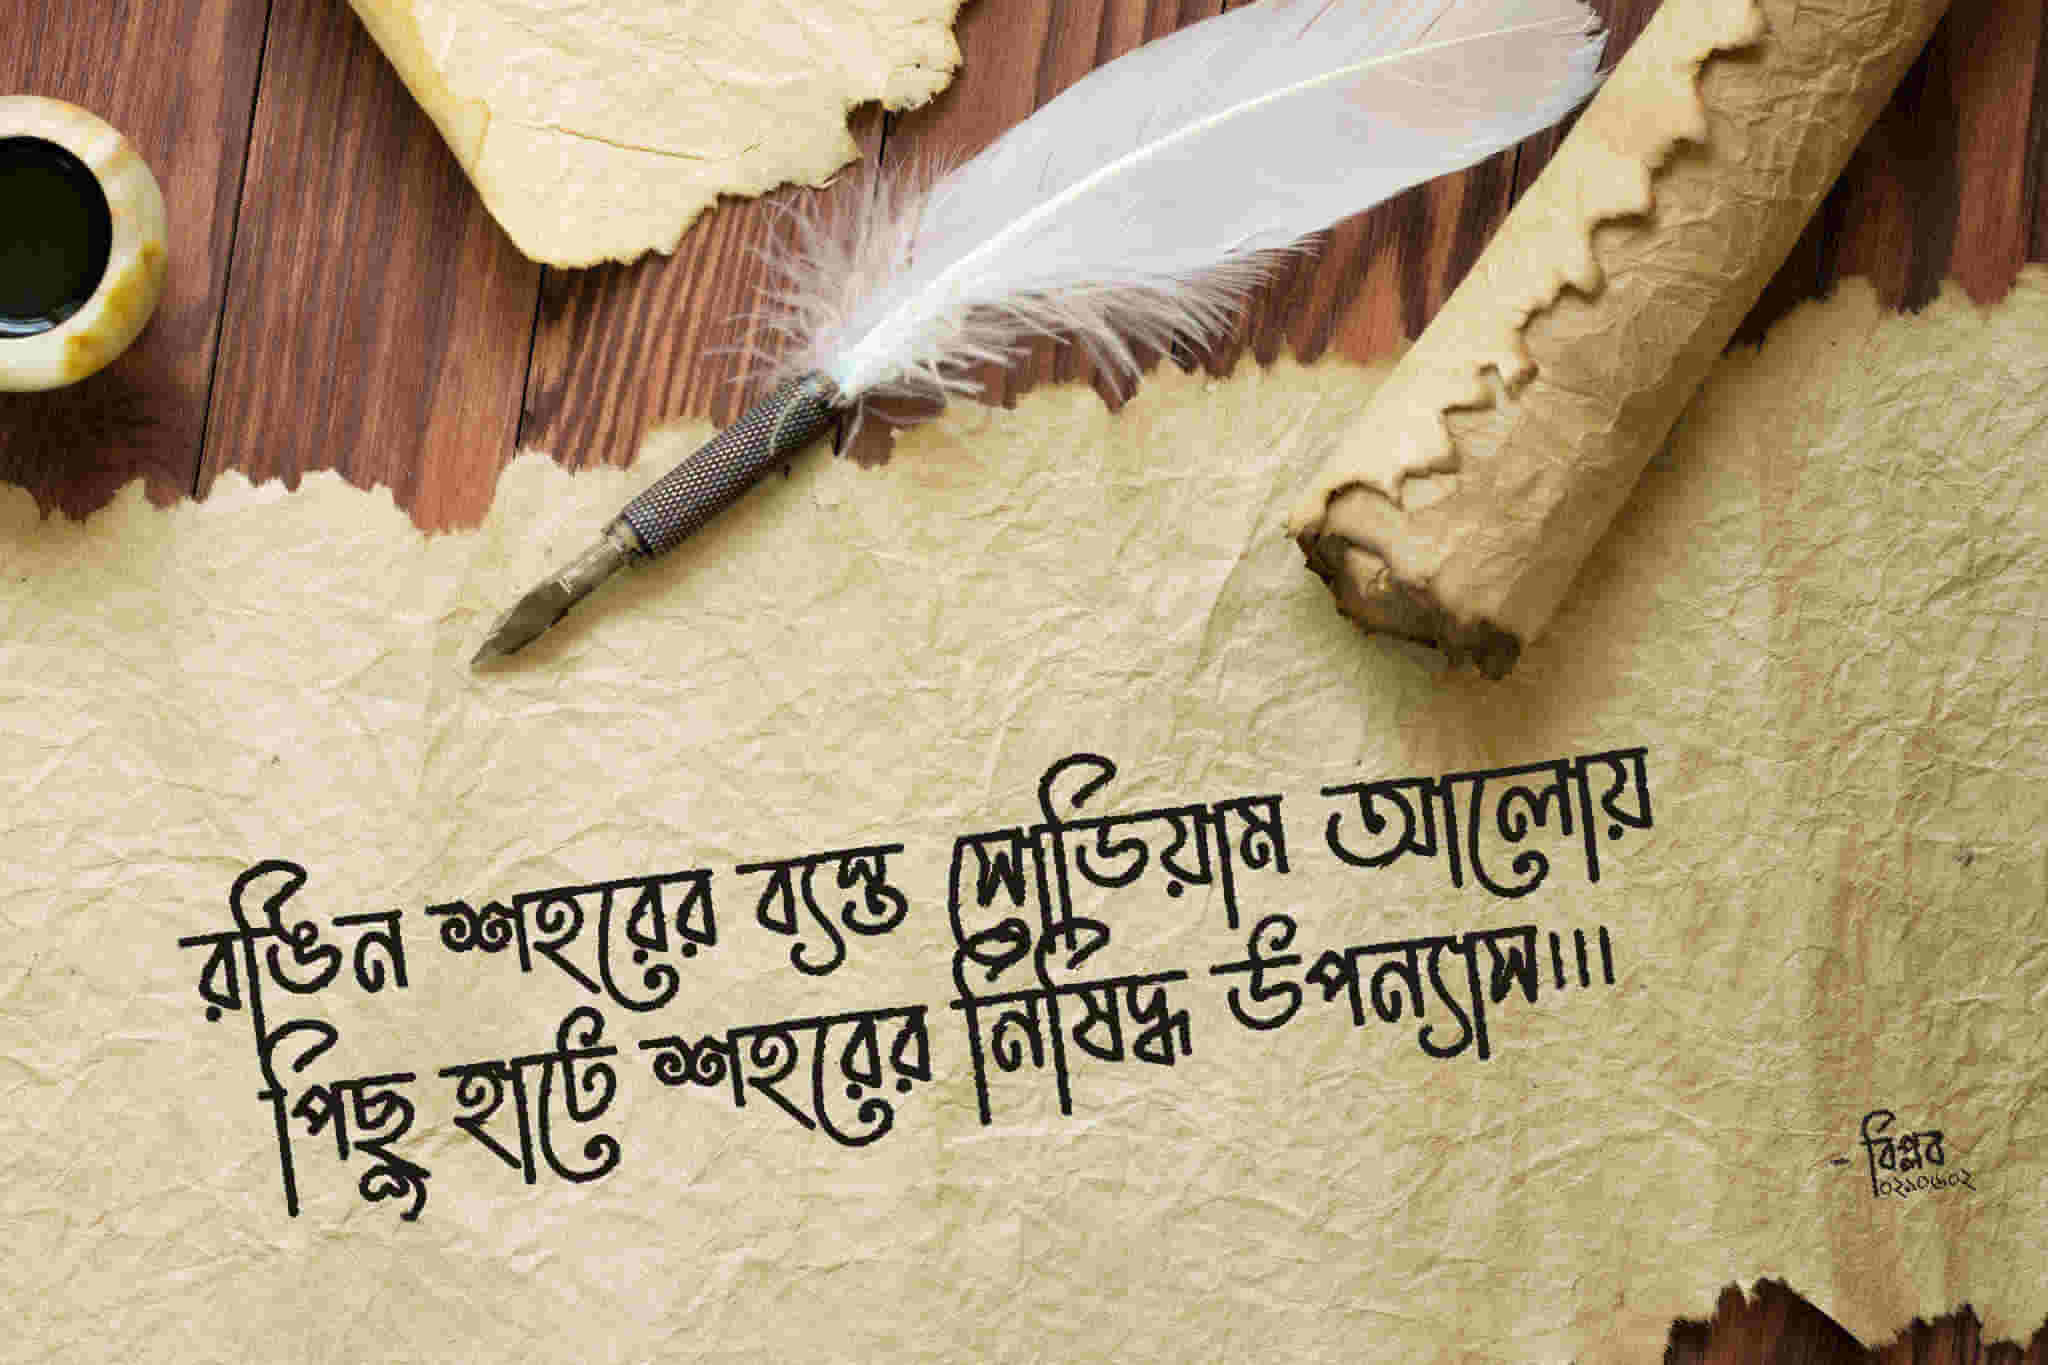 রঙিন শহরের ব্যস্ত সোডিয়াম আলোয়
পিছু হাটে শহরের নিষিদ্ধ উপন্যাস।।।
- বিপ্লব
০২১০৬০২